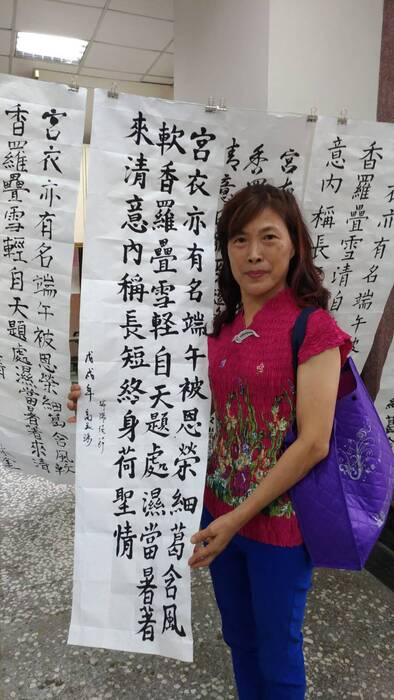 香羅疊雪清自
意內稱長
宮衣亦有名端午被恩榮細葛含風
軟香羅疊雪軽自天題處濕當暑著
來清意內稱長短終身荷聖情
戊戌年
宮衣亦有名端午被恩榮細葛含風軟
香羅疊雪輕自天題處濕當暑著來清